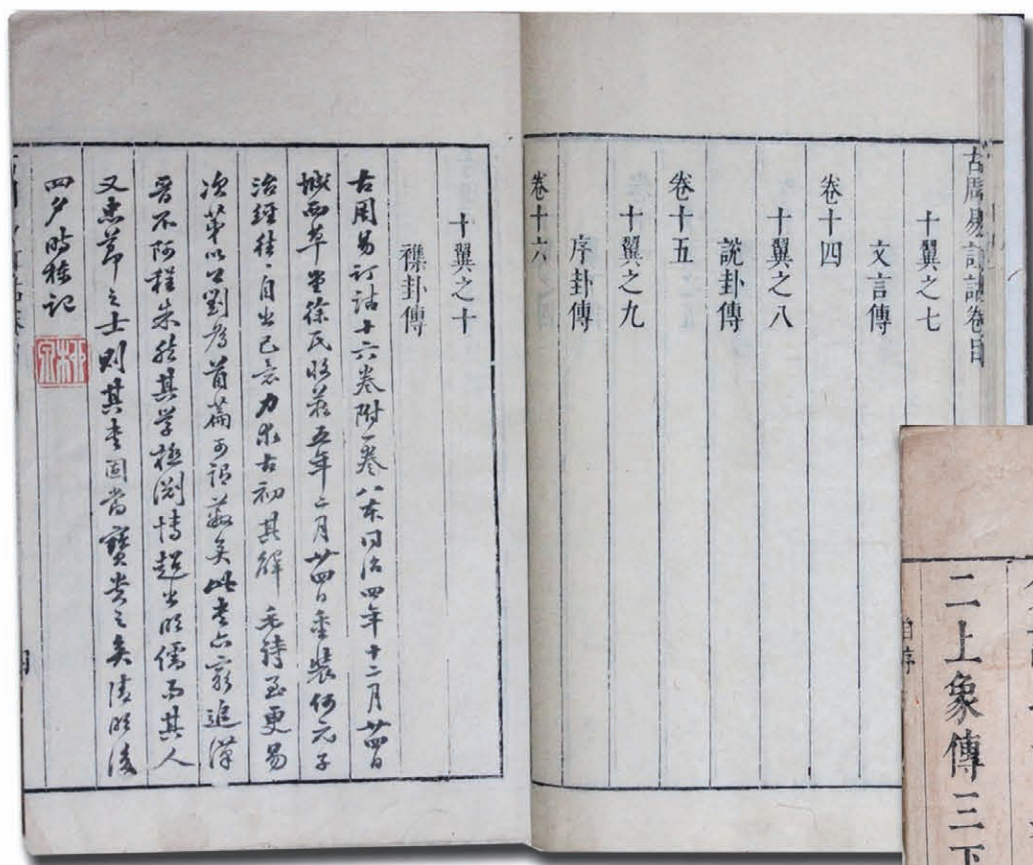 古周易訂詁卷目
十翼之七
文言傳
卷十四
十翼之八
說卦傳
卷十五
十翼之九
序卦傳
卷十六
十翼之十
襍卦傳
古周易訂詁十六卷附一卷八本同治四年十二月廿四日
城西草堂徐氏收藏五年二月廿四日重裝何元子
治經往〻自出己意力求古初其解毛詩至更易
次第以公劉為首篇可謂蔽矣此書亦窮追漢
晉不阿程朱然其學極淵博超出明儒而其人
又忠節之士則其書固當寶貴之矣清明後
四夕時棟記
柳泉
二上象傳三下
自序